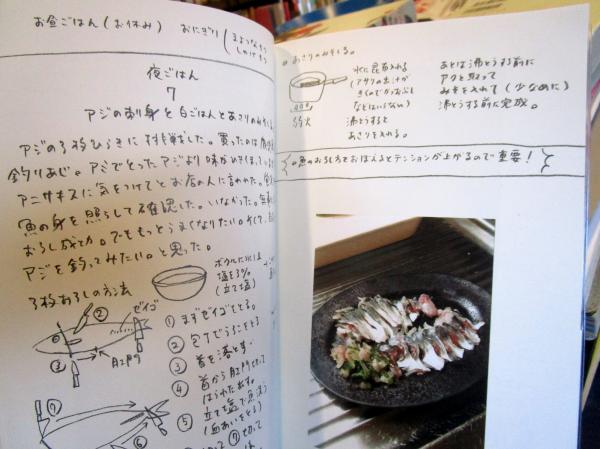 お昼ごはん(お休み) おにぎり
夜ごはん
7
アジの刺身と白ごはんとあさりのみそ汁
アジの3枚おろしに挑戦した。買ったのは
釣りあじ。アミでとったアジより味が
アニサキスに気をつけてとお店の人に言われた。
魚の身を照らして確認した。いなかった。無事
おろし成功。でももっと うまくなりたい。そして、
アジを釣ってみたい。と思った。
3枚おろしの方法
ボウルに水に
塩を3%
(立て塩)
ゼイゴ
②
③
肛門
① まずゼイゴをとる。
② 包丁でうろこをとる
③ 首を落とす
④ 首から肛門切って
はらわた出す。
⑤ 立て塩で魚洗う
(血あいをとる)
⑦
⑥
⑦切って
あさりのみそ汁。
弱火
水に昆布入れる
(アサリの出汁が
きくのでかつおぶし
などはいらない)
沸とうすると
あさりを入れる。
あとは沸とうする前に
アクを取って
みそを入れて(少なめに)
沸とうする前に完成。
魚のおろし方をおぼえるとテンションが上がるので重要!